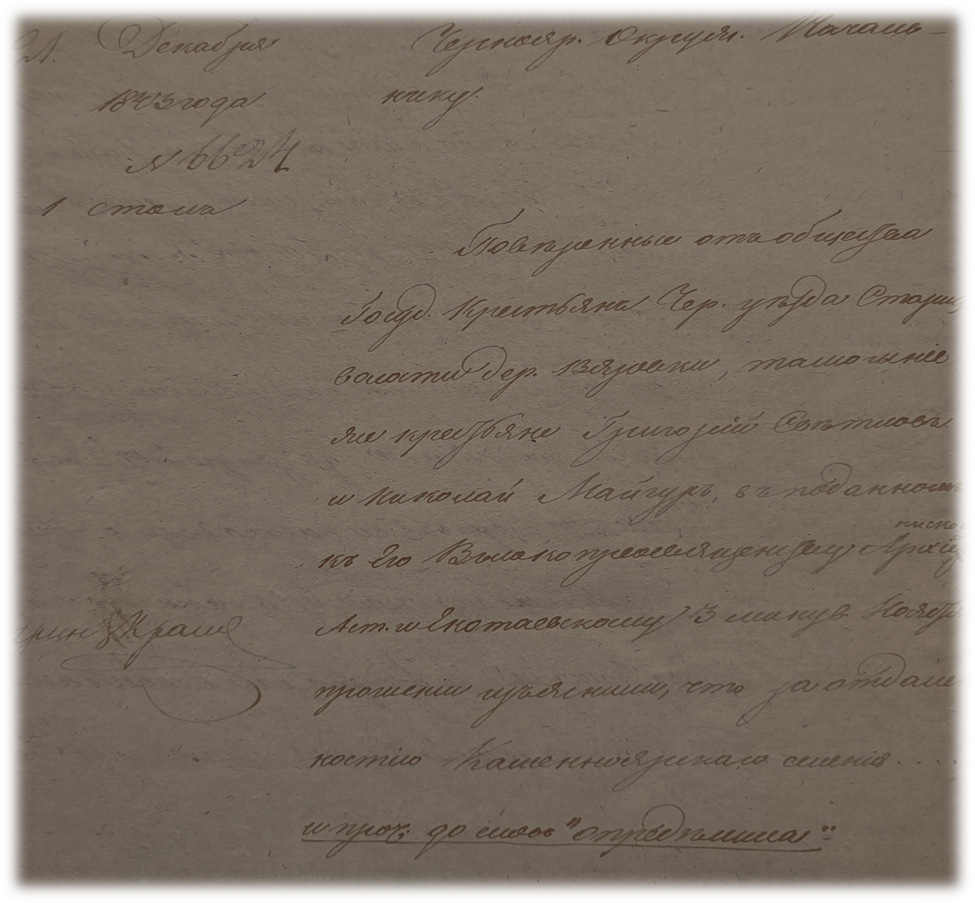 21. Декабря
1843 года
№ 6624
1 столъ
Чернояр. Окружн. Началь-
нику.
Повѣренные отъ общества
Госуд. Крестьянъ Чер. уѣзда Стариц.
волости дер. Вязовки, тамошніе
же крестьяне Григорій Свѣтловъ
и Николай Майгуръ, въ поданномъ
къ Его Высокопреосвященству Архіе
писко
Аст. и Енотаевскому 3 минув. Ноября
прошеніи изъяснили, что за отдален
ностію Каменноярскаго селенія . . . .
и проч. до словъ "опредѣлила":